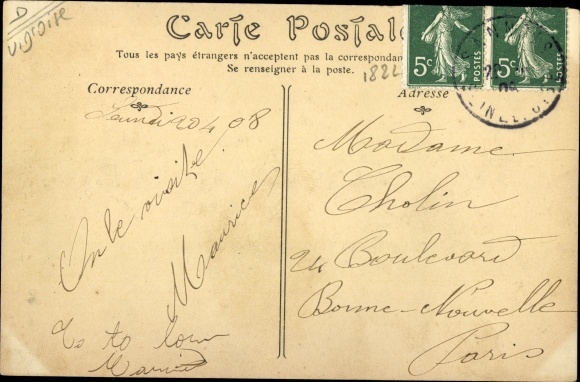 D
Carte Postale
Tous les pays étrangers n'acceptent pas la correspondan
Se renseigner à la poste.
1822
Correspondance
Adresse
5c POSTES
5c POSTES
Lundi 20 4 08
On le visite
Maurice
Madame
Cholin
24 Boulevard
Bonne-Nouvelle
Paris